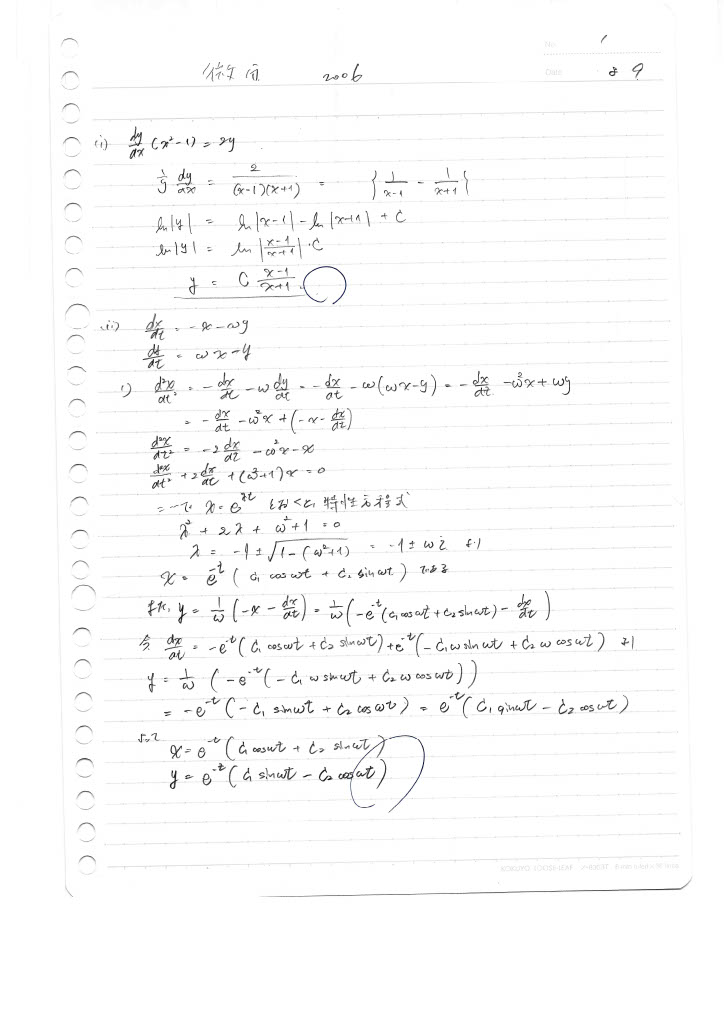 No. 1
Date 8 9
微 2006
(i) dy/dx (x²-1) = 2y
1/y dy/dx = 2/((x-1)(x+1)) = { 1/(x-1) - 1/(x+1) }
ln|y| = ln|x-1| - ln|x+1| + C
ln|y| = ln|(x-1)/(x+1)|·C
y = C (x-1)/(x+1)
(ii) dx/dt = -x-ωy
dy/dt = ωx-y
1) d²x/dt² = -dx/dt - ω dy/dt = -dx/dt - ω(ωx-y) = -dx/dt - ω²x + ωy
= -dx/dt - ω²x + (-x-dx/dt)
d²x/dt² = -2 dx/dt - ω²x - x
d²x/dt² + 2 dx/dt + (ω²+1)x = 0
x = e^λt 特性方程式
λ² + 2λ + ω²+1 = 0
λ = -1±√(1-(ω²+1)) = -1±ωi より
x = e^-t (C₁ cosωt + C₂ sinωt) である
また, y = 1/ω (-x - dx/dt) = 1/ω (-e^-t (C₁cosωt + C₂sinωt) - dx/dt)
今 dx/dt = -e^-t (C₁ cosωt + C₂ sinωt) + e^-t (-C₁ω sinωt + C₂ω cosωt) より
y = 1/ω (-e^-t (-C₁ ω sinωt + C₂ω cosωt))
= -e^-t (-C₁ sinωt + C₂ cosωt) = e^-t (C₁ sinωt - C₂ cosωt)
よって x = e^-t (C₁ cosωt + C₂ sinωt)
y = e^-t (C₁ sinωt - C₂ cosωt)